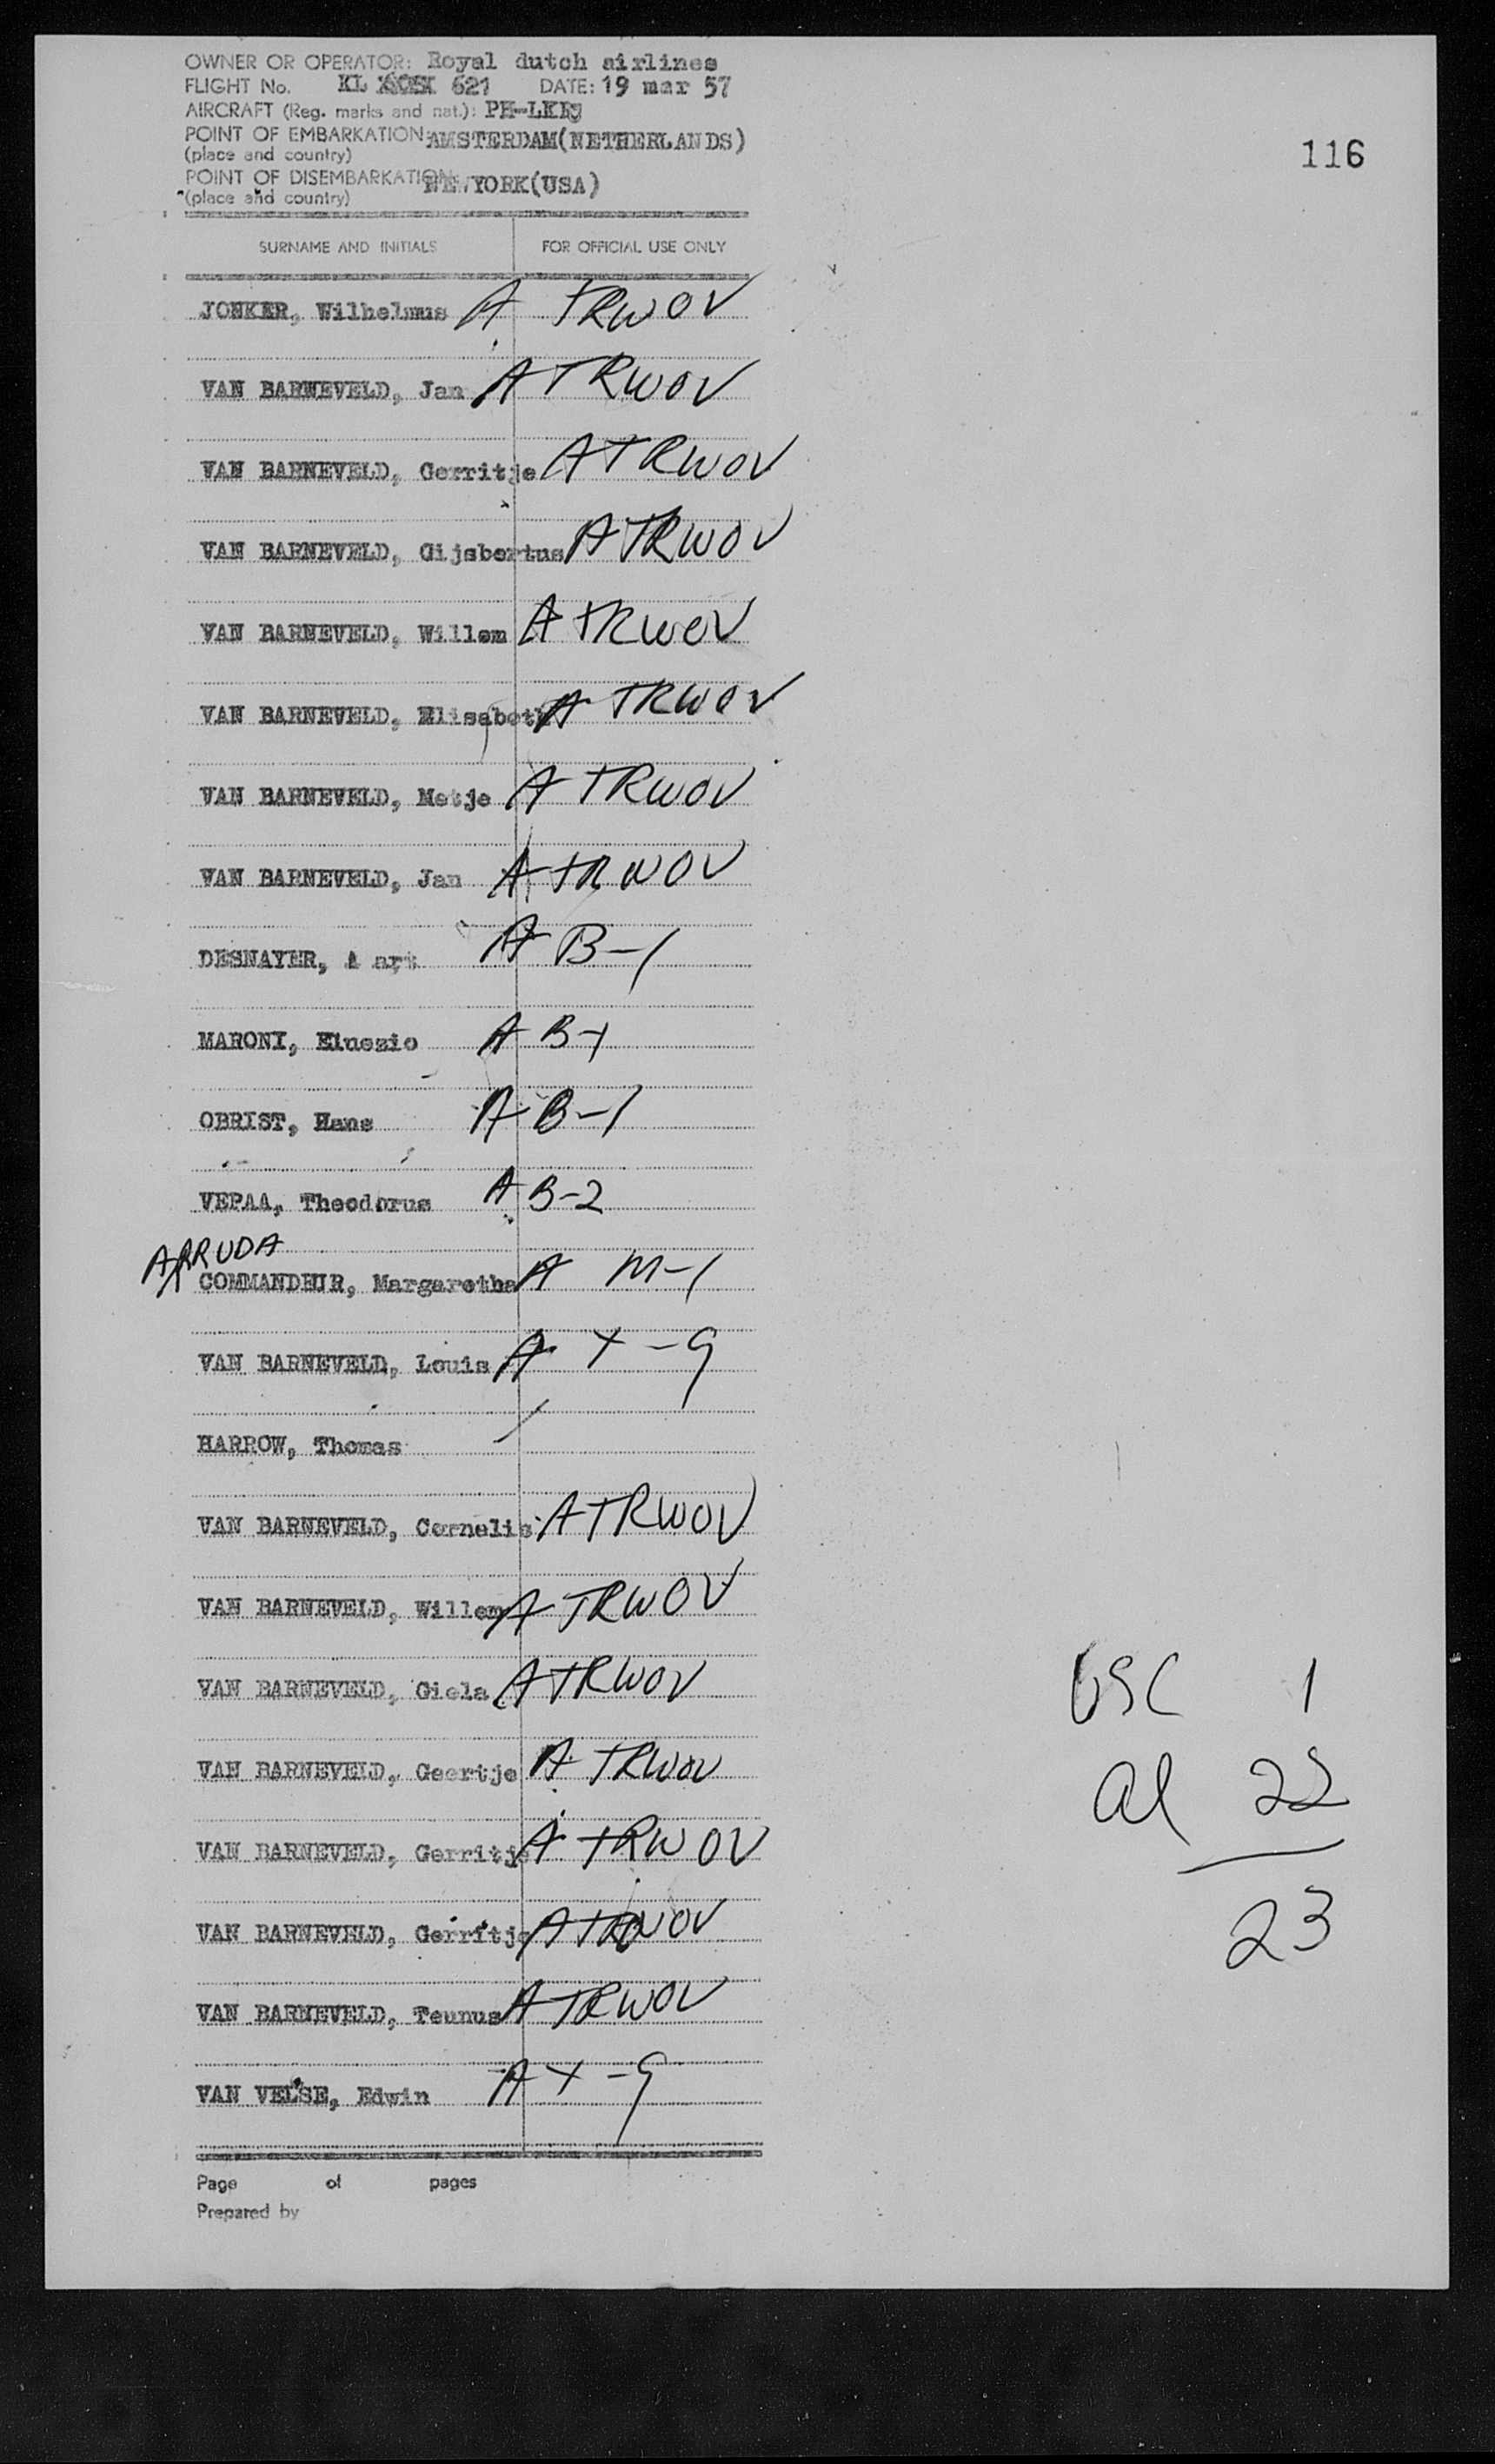 OWNER OR OPERATOR: Royal dutch airlines
FLIGHT No. KL 621 DATE: 19 mar 57
AIRCRAFT (Reg. marks and nat.):
POINT OF EMBARKATION: AMSTERDAM(NETHERLANDS)
(place and country)
116
POINT OF DISEMBARKATION: NEWYORK(USA)
(place and country)
SURNAME AND INITIALS FOR OFFICIAL USE ONLY
JONKER, Wilhelmus A TRWOV
VAN BARNEVELD, Jan A TRWOV
VAN BARNEVELD, Gerritje A TRWOV
VAN BARNEVELD, Gijsbertus A TRWOV
VAN BARNEVELD, Willem A TRWOV
VAN BARNEVELD, Elisabeth A TRWOV
VAN BARNEVELD, Metje A TRWOV
VAN BARNEVELD, Jan A TRWOV
DESNAYER, A art A B-1
MARONI, Elnezio A B-1
OBRIST, Hans A B-1
VEPAA, Theodorus A B-2
ARRUDA
COMMANDEUR, Margaretha A M-1
VAN BARNEVELD, Louis A X-9
HARROW, Thomas
VAN BARNEVELD, Cornelis A TRWOV
VAN BARNEVELD, Willem A TRWOV
VAN BARNEVELD, Giela A TRWOV
VAN BARNEVELD, Geertje A TRWOV
VAN BARNEVELD, Gerritje A TRWOV
VAN BARNEVELD, Gerritje A TRWOV
VAN BARNEVELD, Teunus A TRWOV
VAN VELSE, Edwin A X-9
USC 1
al 22
23
Page of pages
Prepared by